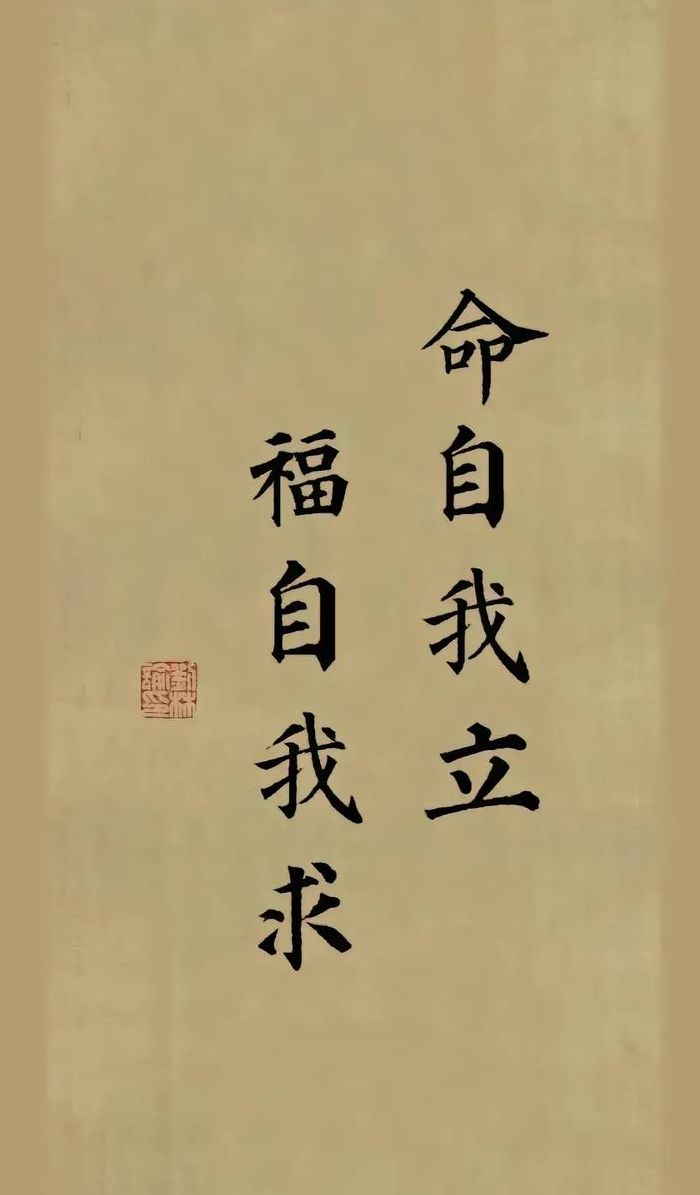 命自我立
福自我求